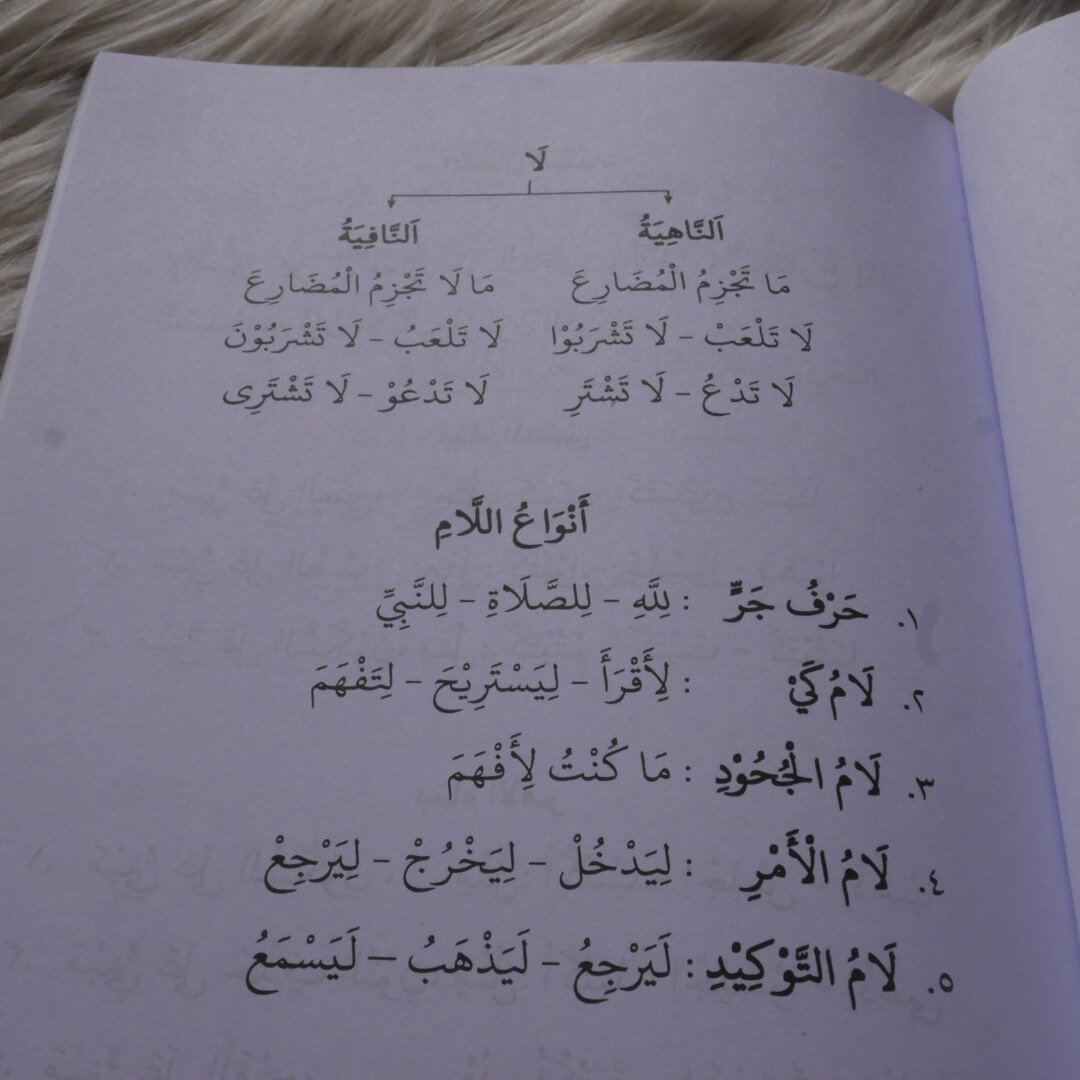 لَا
اَلنَّاهِيَةُ اَلنَّافِيَةُ
مَا تَجْزِمُ الْمُضَارِعَ مَا لَا تَجْزِمُ الْمُضَارِعَ
لَا تَلْعَبْ – لَا تَشْرَبُوْا لَا تَلْعَبُ – لَا تَشْرَبُوْنَ
لَا تَدْعُ – لَا تَشْتَرِ لَا تَدْعُوْ – لَا تَشْتَرِى
أَنْوَاعُ اللَّامِ
١. حَرْفُ جَرٍّ : لِلَّهِ – لِلصَّلَاةِ – لِلنَّبِيِّ
٢. لَامُ كَيْ : لِأَقْرَأَ – لِيَسْتَرِيْحَ – لِتَفْهَمَ
٣. لَامُ الْجُحُوْدِ : مَا كُنْتُ لِأَفْهَمَ
٤. لَامُ الْأَمْرِ : لِيَدْخُلْ – لِيَخْرُجْ – لِيَرْجِعْ
٥. لَامُ التَّوْكِيْدِ : لَيَرْجِعُ – لَيَذْهَبُ – لَيَسْمَعُ